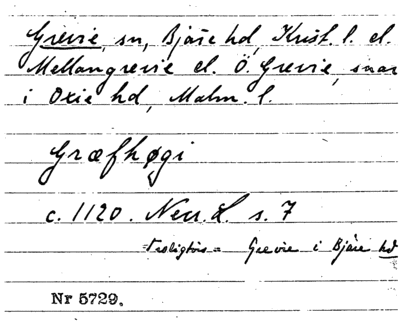 Grevie, sn, Bjäre hd, Krist. l. el.
Mellangrevie el. Ö. Grevie, snar
i Oxie hd, Malm. l.
Græfhøgi
c. 1120. Necr. L. s. 7
Troligtvis = Grevie i Bjäre hd
Nr 5729.